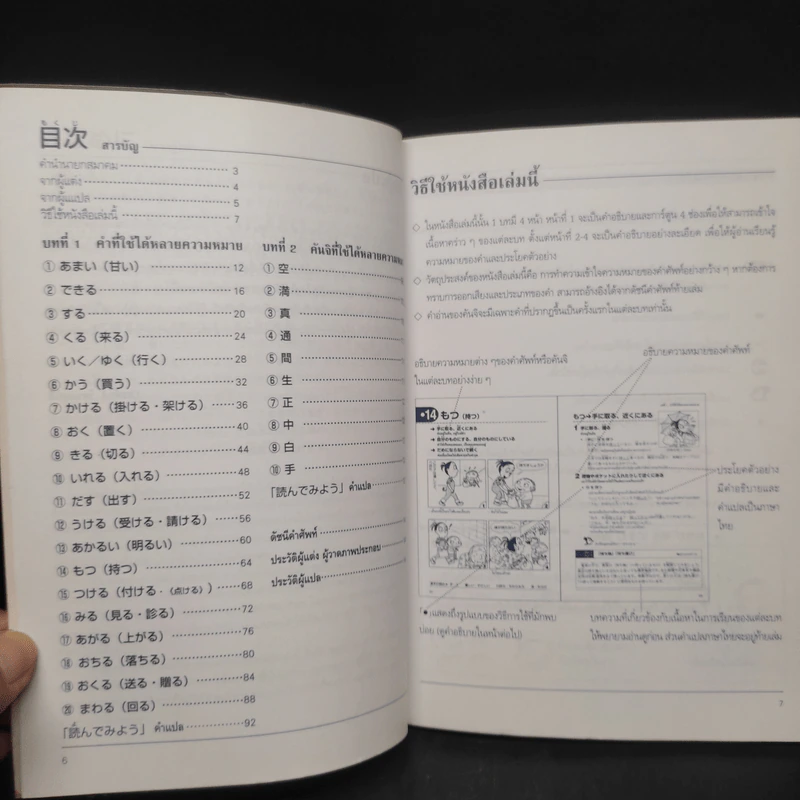 目次 สารบัญ
คำนำนายกสมาคม 3
จากผู้แต่ง 4
จากผู้แปล 5
วิธีใช้หนังสือเล่มนี้ 7
บทที่ 1 คำที่ใช้ได้หลายความหมาย
① あまい（甘い） 12
② できる 16
③ する 20
④ くる（来る） 24
⑤ いく／ゆく（行く） 28
⑥ かう（買う） 32
⑦ かける（掛ける・架ける） 36
⑧ おく（置く） 40
⑨ きる（切る） 44
⑩ いれる（入れる） 48
⑪ だす（出す） 52
⑫ うける（受ける・請ける） 56
⑬ あかるい（明るい） 60
⑭ もつ（持つ） 64
⑮ つける（付ける・（点ける）） 68
⑯ みる（見る・診る） 72
⑰ あがる（上がる） 76
⑱ おちる（落ちる） 80
⑲ おくる（送る・贈る） 84
⑳ まわる（回る） 88
「読んでみよう」 คำแปล 92
6
บทที่ 2 คันจิที่ใช้ได้หลายความ
① 空
② 満
③ 真
④ 通
⑤ 間
⑥ 生
⑦ 正
⑧ 中
⑨ 白
⑩ 手
「読んでみよう」 คำแปล
ดัชนีคำศัพท์
ประวัติผู้แต่ง ผู้วาดภาพประกอบ
ประวัติผู้แปล
วิธีใช้หนังสือเล่มนี้
◇ ในหนังสือเล่มนี้นั้น 1 บทมี 4 หน้า หน้าที่ 1 จะเป็นคำอธิบายและการ์ตูน 4 ช่องเพื่อให้สามารถเข้าใจ
เนื้อหาคร่าว ๆ ของแต่ละบท ตั้งแต่หน้าที่ 2-4 จะเป็นคำอธิบายอย่างละเอียด เพื่อให้ผู้อ่านเรียนรู้
ความหมายของคำและประโยคตัวอย่าง
◇ วัตถุประสงค์ของหนังสือเล่มนี้คือ การทำความเข้าใจความหมายของคำศัพท์อย่างกว้าง ๆ หากต้องการ
ทราบการออกเสียงและประเภทของคำ สามารถอ้างอิงได้จากดัชนีคำศัพท์ท้ายเล่ม
◇ คำอ่านของคันจิจะมีเฉพาะคำที่ปรากฏขึ้นเป็นครั้งแรกในแต่ละบทเท่านั้น
อธิบายความหมายต่าง ๆของคำศัพท์หรือคันจิ
ในแต่ละบทอย่างง่าย ๆ
อธิบายความหมายของคำศัพท์
•14 もつ（持つ）
→ 手に取る、近くにある
→ 自分のものにする、自分のものにしている
→ だめにならないで続く
もつ→手に取る、近くにある
1 手に取る、握る
ประโยคตัวอย่าง
มีคำอธิบายและ
คำแปลเป็นภาษา
ไทย
「•」แสดงถึงรูปแบบของวิธีการใช้ที่มักพบ
บ่อย (ดูคำอธิบายในหน้าต่อไป)
บทความที่เกี่ยวข้องกับเนื้อหาในการเรียนของแต่ละบท
ให้พยายามอ่านดูก่อน ส่วนคำแปลภาษาไทยจะอยู่ท้ายเล่ม
7